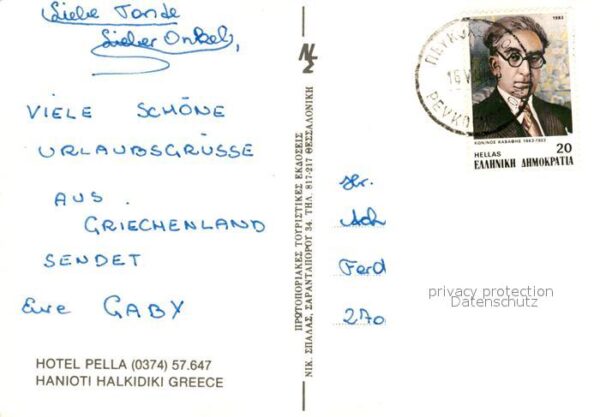 Liebe Tande
Lieber Onkel,
VIELE SCHÖNE
URLAUBSGRÜSSE
AUS
GRIECHENLAND
SENDET
Eure GABY
HOTEL PELLA (0374) 57.647
HANIOTI HALKIDIKI GREECE
ΠΡΩΤΟΠΟΡΙΑΚΕΣ ΤΟΥΡΙΣΤΙΚΕΣ ΕΚΔΟΣΕΙΣ
ΝΙΚ. ΣΠΑΛΑΣ, ΣΑΡΑΝΤΑΠΟΡΟΥ 34. ΤΗΛ. 817-217 ΘΕΣΣΑΛΟΝΙΚΗ
ΝΣ
1983
ΚΩΝ/ΝΟΣ ΚΑΒΑΦΗΣ 1863-1933
HELLAS 20
ΕΛΛΗΝΙΚΗ ΔΗΜΟΚΡΑΤΙΑ
Hr.
Ach
Ferd
270
privacy protection
Datenschutz